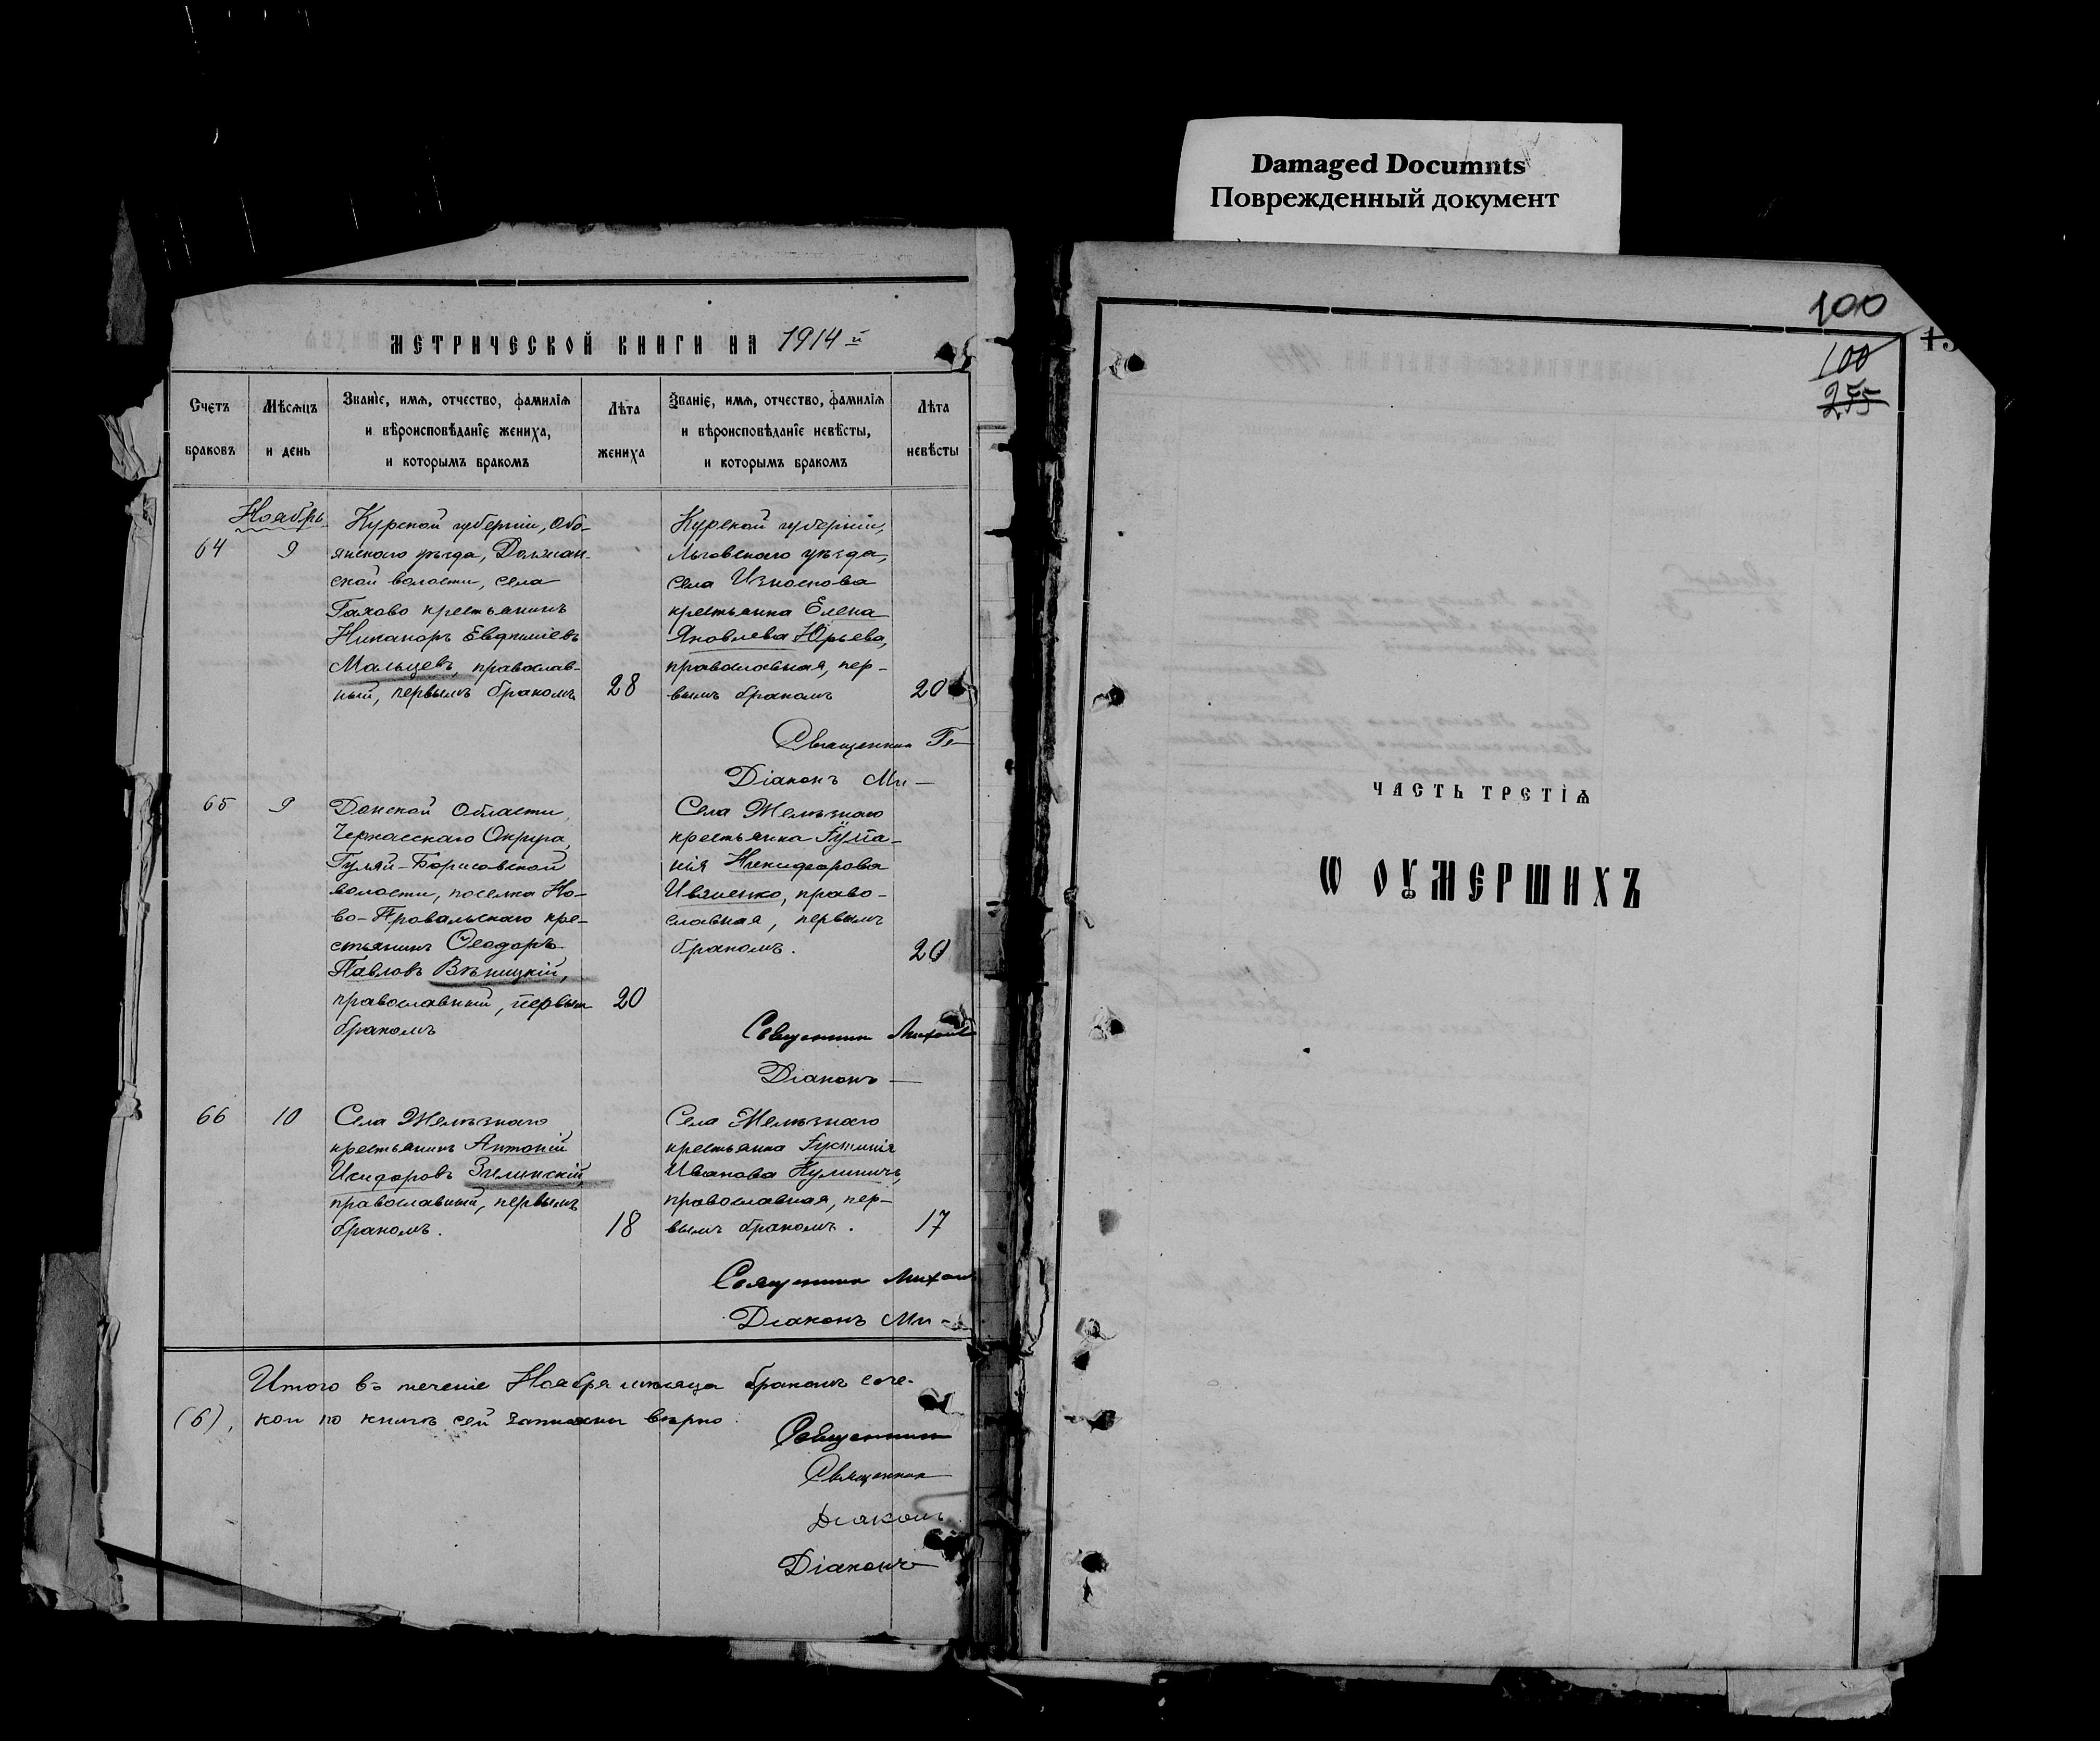 Damaged Documnts
Поврежденный документ
МЕТРИЧЕСКОЙ КНИГИ НА 1914 й
Счетъ браковъ
Мѣсяцъ и день
Званіе, имя, отчество, фамилія
и вѣроисповѣданіе жениха,
и которымъ бракомъ
Лѣта жениха
Званіе, имя, отчество, фамилія
и вѣроисповѣданіе невѣсты,
и которымъ бракомъ
Лѣта невѣсты
Ноябрь
64
9
Курской губерніи, Обо-
янскаго уѣзда, Должан-
ской волости, села
Гахово крестьянинъ
Никаноръ Евфиміевъ
Мальцевъ, православ-
ный, первымъ бракомъ
28
Курской губерніи,
Льговскаго уѣзда,
села Износкова
крестьянка Елена
Яковлева Юрьева,
православная, пер-
вымъ бракомъ
20
Священникъ Ге-
Діаконъ Ми-
65
9
Донской Области,
Черкасскаго Округа,
Гуляй-Борисовской
волости, поселка Но-
во-Провальскаго кре-
стьянинъ Ѳеодоръ
Павловъ Вѣницкій,
православный, первым
бракомъ
20
Села Желѣзнаго
крестьянка
нія Никифорова
Иваненко, право-
славная, первымъ
бракомъ.
20
Священник Михаил
Діаконъ
66
10
Села Желѣзнаго
крестьянинъ Антоній
Исидоровъ Зелинскій,
православный, первымъ
бракомъ.
18
Села Желѣзнаго
крестьянка Іустинія
Иванова Кулиничъ,
православная, пер-
вымъ бракомъ.
17
Священник Михаи
Діаконъ Ми-
Итого въ теченіе Ноября мѣсяца бракомъ соче-
(6), кои по книгѣ сей записаны вѣрно.
Священник
Священник
Діаконъ
Діаконъ
100
100
255
ЧАСТЬ ТРЕТІЯ
Ѡ ОУМЕРШИХЪ